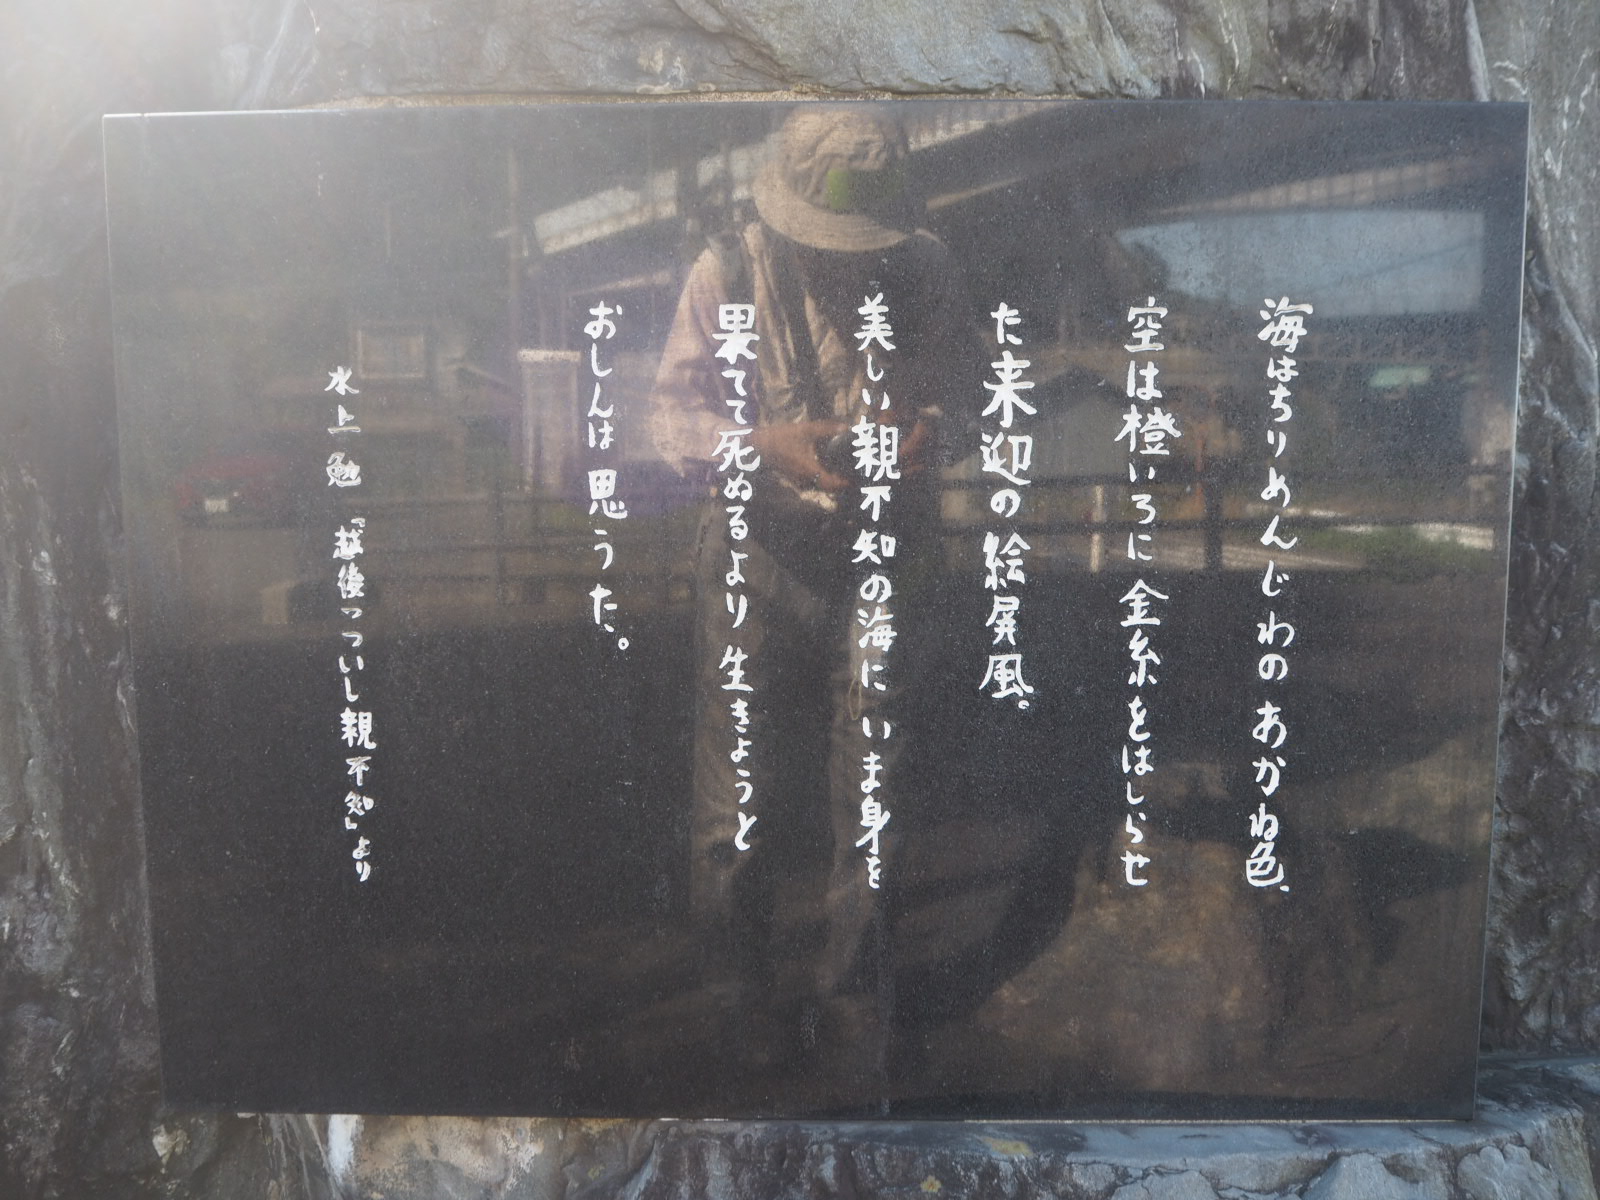 海はちりめんじわの あかね色、
空は橙いろに 金糸をはしらせ
た来迎の絵屏風。
美しい親不知の海に いま身を
果てて死ぬるより 生きようと
おしんは思うた。
水上勉 『越後つついし親不知』より